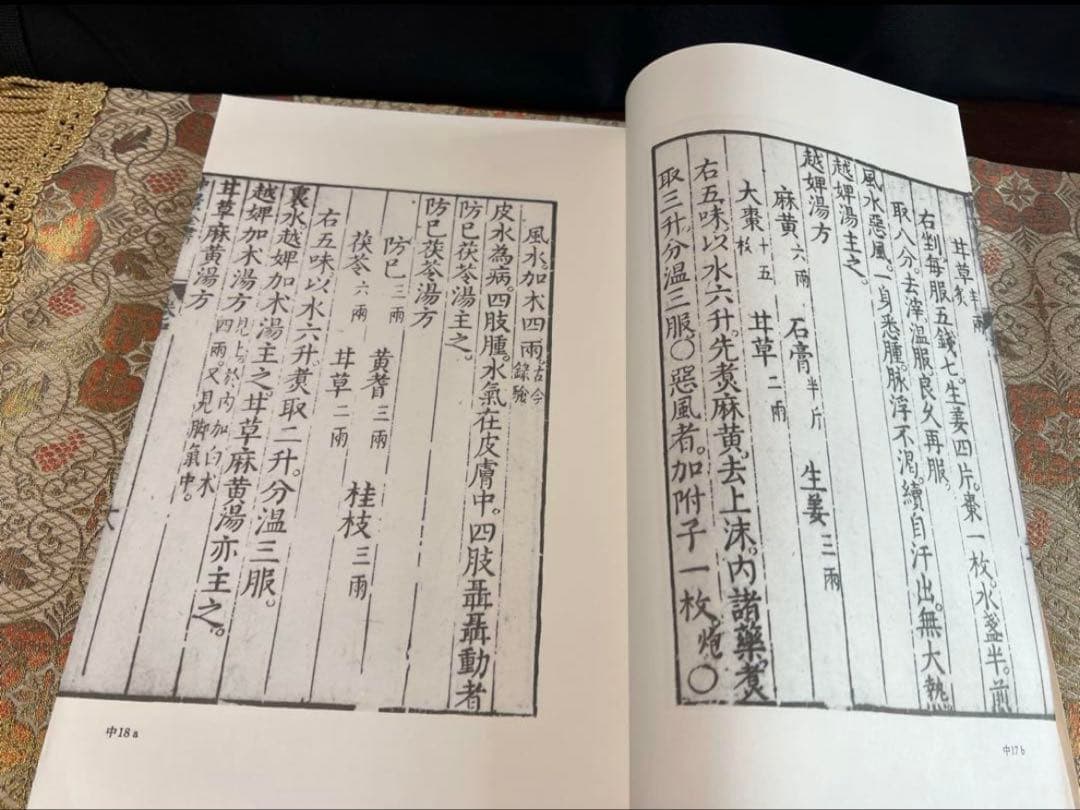 甘草炙 半兩
右剉每服五錢七。生姜四片。棗一枚。水盞半。前
取八分。去滓温服。良久再服。
風水惡風。一身悉腫。脉浮不渴。續自汗出。無大熱
越婢湯主之。
越婢湯方
麻黄六兩 石膏半斤 生姜三兩
大棗十五枚 甘草二兩
右五味以水六升。先煑麻黄。去上沫。内諸藥。煑
取三升。分温三服。○惡風者。加附子一枚炮○
中17b
風水加朮四兩。古今錄驗
皮水為病。四肢腫。水氣在皮膚中。四肢聶聶動者
防已茯苓湯主之。
防已茯苓湯方
防已三兩 黄耆三兩 桂枝三兩
茯苓六兩 甘草二兩
右五味以水六升。煑取二升。分温三服。
裏水越婢加朮湯主之。甘草麻黄湯亦主之。
越婢加朮湯方見上。於内加白朮四兩又見脚氣中。
甘草麻黄湯方
中18a